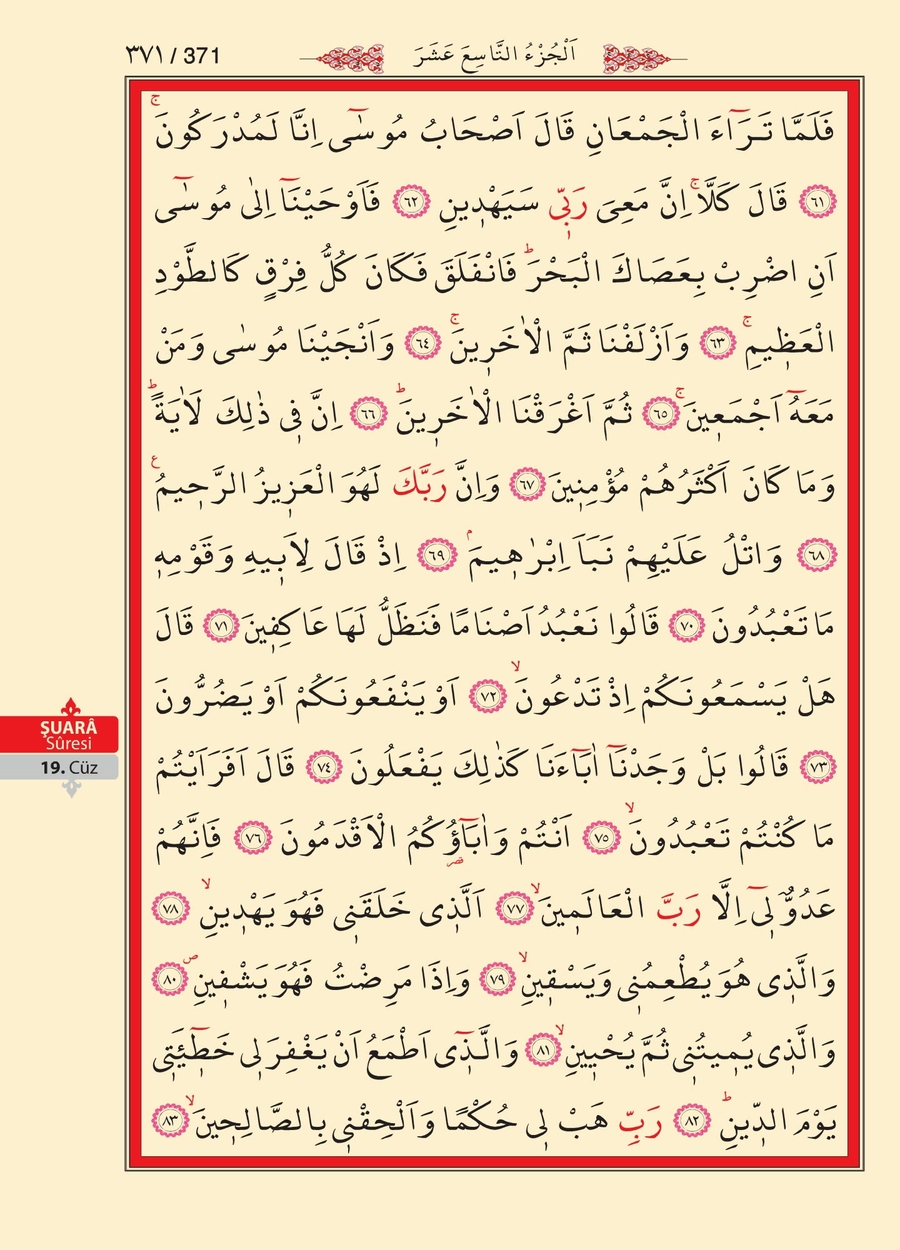 ٣٧١ / 371
اَلْجُزْءُ التَّاسِعَ عَشَرَ
فَلَمَّا تَرَٓاءَ الْجَمْعَانِ قَالَ اَصْحَابُ مُوسٰٓى اِنَّا لَمُدْرَكُونَۚ
﴿٦١﴾ قَالَ كَلَّاۚ اِنَّ مَعِيَ رَبّ۪ي سَيَهْد۪ينِ ﴿٦٢﴾ فَاَوْحَيْنَٓا اِلٰى مُوسٰٓى
اَنِ اضْرِبْ بِعَصَاكَ الْبَحْرَۜ فَانْفَلَقَ فَكَانَ كُلُّ فِرْقٍ كَالطَّوْدِ
الْعَظ۪يمِۚ ﴿٦٣﴾ وَاَزْلَفْنَا ثَمَّ الْاٰخَر۪ينَۚ ﴿٦٤﴾ وَاَنْجَيْنَا مُوسٰى وَمَنْ
مَعَهُٓ اَجْمَع۪ينَۚ ﴿٦٥﴾ ثُمَّ اَغْرَقْنَا الْاٰخَر۪ينَۜ ﴿٦٦﴾ اِنَّ ف۪ي ذٰلِكَ لَاٰيَةًۜ
وَمَا كَانَ اَكْثَرُهُمْ مُؤْمِن۪ينَ ﴿٦٧﴾ وَاِنَّ رَبَّكَ لَهُوَ الْعَز۪يزُ الرَّح۪يمُ ع
﴿٦٨﴾ وَاتْلُ عَلَيْهِمْ نَبَاَ اِبْرٰه۪يمَۢ ﴿٦٩﴾ اِذْ قَالَ لِاَب۪يهِ وَقَوْمِه۪
مَا تَعْبُدُونَ ﴿٧٠﴾ قَالُوا نَعْبُدُ اَصْنَامًا فَنَظَلُّ لَهَا عَاكِف۪ينَ ﴿٧١﴾ قَالَ
هَلْ يَسْمَعُونَكُمْ اِذْ تَدْعُونَۙ ﴿٧٢﴾ اَوْ يَنْفَعُونَكُمْ اَوْ يَضُرُّونَ
﴿٧٣﴾ قَالُوا بَلْ وَجَدْنَٓا اٰبَٓاءَنَا كَذٰلِكَ يَفْعَلُونَ ﴿٧٤﴾ قَالَ اَفَرَاَيْتُمْ
مَا كُنْتُمْ تَعْبُدُونَۙ ﴿٧٥﴾ اَنْتُمْ وَاٰبَٓاؤُ۬كُمُ الْاَقْدَمُونَ ﴿٧٦﴾ فَاِنَّهُمْ
قصر
عَدُوٌّ ل۪ٓي اِلَّا رَبَّ الْعَالَم۪ينَۙ ﴿٧٧﴾ اَلَّذ۪ي خَلَقَن۪ي فَهُوَ يَهْد۪ينِۙ ﴿٧٨﴾
وَالَّذ۪ي هُوَ يُطْعِمُن۪ي وَيَسْق۪ينِۙ ﴿٧٩﴾ وَاِذَا مَرِضْتُ فَهُوَ يَشْف۪ينِۖ ﴿٨٠﴾
وَالَّذ۪ي يُم۪يتُن۪ي ثُمَّ يُحْي۪ينِۙ ﴿٨١﴾ وَالَّذ۪ٓي اَطْمَعُ اَنْ يَغْفِرَ ل۪ي خَط۪ٓيـَٔت۪ي
يَوْمَ الدّ۪ينِۜ ﴿٨٢﴾ رَبِّ هَبْ ل۪ي حُكْمًا وَاَلْحِقْن۪ي بِالصَّالِح۪ينَۙ ﴿٨٣﴾
ŞUARÂ
Sûresi
19. Cüz